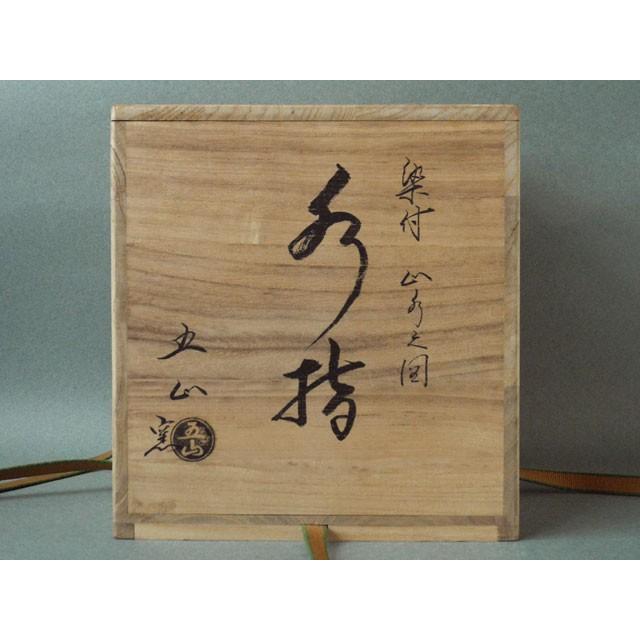 染付 山水之図
水指
五山窯
五山